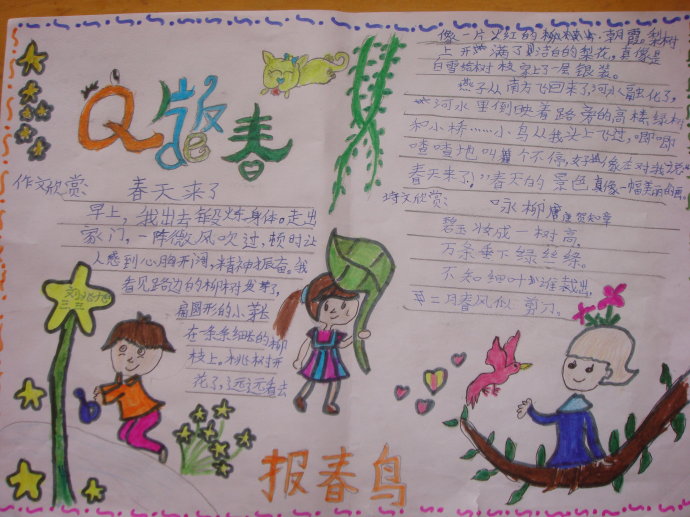 Q版de春
作文欣赏:
春天来了
早上,我出去锻炼身体。走出
家门,一阵微风吹过,顿时让
人感到心胸开阔,精神振奋。我
看见路边的柳树发芽了,
扁圆形的小芽长
在一条条细长的柳
枝上。桃树开
花了,远远看去
像一片火红的朝霞。梨树
上开满了洁白的梨花,真像是
白雪给树枝穿上了一层银装。
燕子从南方飞回来了,河水融化了,
河水里倒映着路旁的高楼、绿树
和小桥……小鸟从我头上飞过,唧唧
喳喳地叫个不停,好像在对我说:
春天来了!”春天的景色真像一幅美丽的画。
诗文欣赏:
咏柳 唐 贺知章
碧玉妆成一树高,
万条垂下绿丝绦。
不知细叶谁裁出,
二月春风似剪刀。
报春鸟